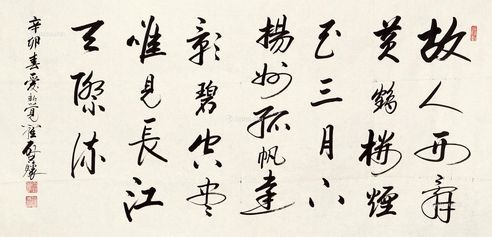 故人西辞
黄鶴楼煙
花三月下
揚州孤帆遠
影碧空尽
唯見長江
天際流
辛卯春